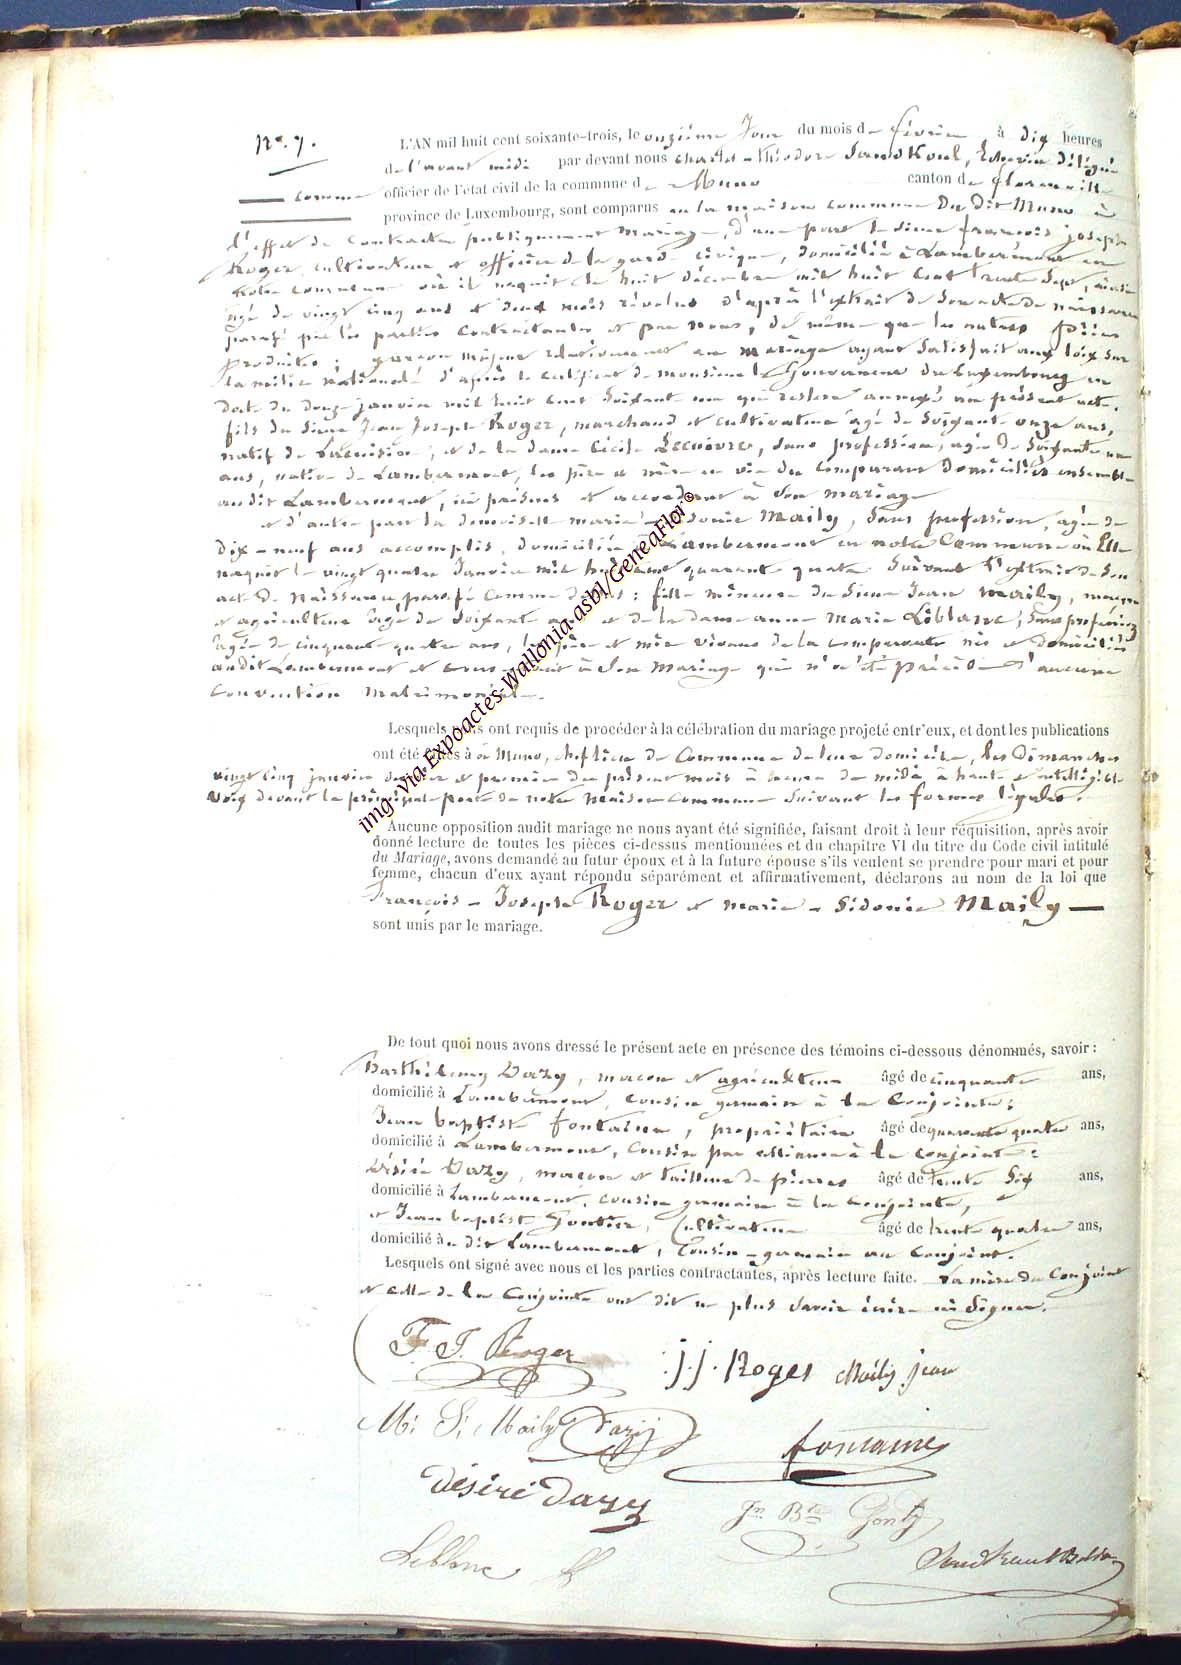 N°. 7.
L'AN mil huit cent soixante-trois, le onzième Jour du mois de février à dix heures
de l'avant midi par devant nous Charles-Théodore Délégué
comme officier de l'état civil de la commune de Muno canton de florenville
province de Luxembourg, sont comparus en la maison commune du dit Muno à
l'effet de contracter publiquement mariage, d'une part le sieur françois joseph
Roger cultivateur et officier de la garde civique, domicilié à Lambermont en
notre commune où il naquit le huit décembre mil huit cent trente sept, ainsi
âgé de vingt cinq ans et deux mois révolus d'après l'extrait de son acte de naissance
parafé par les parties contractantes et par nous, de même que les autres pièces
produites; garçon majeur relativement au mariage ayant satisfait aux loix sur
la milice nationale d'après le certificat de monsieur le Gouverneur du Luxembourg en
date du douze janvier mil huit cent soixante un qui restera annexé au présent acte.
fils du sieur Jean Joseph Roger, marchand et cultivateur âgé de soixante onze ans,
natif de Lacuisine, et de la dame Cécile Lecuivre, sans profession, agée de soixante un
ans, native de Lambermont, les père et mère en vie du comparant domiciliés ensemble
au dit Lambermont, ici présens et accordant à son mariage
et d'autre part la demoiselle marie Sidonie Maily, sans profession, agée de
dix-neuf ans accomplis, domiciliée à Lambermont en notre Commune où Elle
naquit le vingt quatre Janvier mil huit cent quarante quatre suivant l'extrait de son
acte de naissance parafé comme dessus: fille mineure du sieur Jean Maily, maçon
et agriculteur âgé de soixante ans et de la dame anne Marie Leblanc, sans profession
âgée de cinquante quatre ans, les père et mère vivans de la comparante nés et domiciliés
au dit Lambermont et consentant à son mariage qui n'a été précédé d'aucune
convention matrimoniale.
Lesquels nous ont requis de procéder à la célébration du mariage projeté entr'eux, et dont les publications
ont été faites à Muno, chef lieu de Commune de leur domicile, les Dimanches
vingt cinq janvier dernier et premier du présent mois à heure de midi à haute et intelligible
voix devant la principale porte de notre Maison Commune suivant les formes légales.
Aucune opposition audit mariage ne nous ayant été signifiée, faisant droit à leur réquisition, après avoir
donné lecture de toutes les pièces ci-dessus mentionnées et du chapitre VI du titre du Code civil intitulé
du Mariage, avons demandé au futur époux et à la future épouse s'ils veulent se prendre pour mari et pour
femme, chacun d'eux ayant répondu séparément et affirmativement, déclarons au nom de la loi que
François-Joseph Roger et marie-Sidonie Maily
sont unis par le mariage.
De tout quoi nous avons dressé le présent acte en présence des témoins ci-dessous dénommés, savoir:
Barthélemy Dazy, maçon et agriculteur âgé de cinquante ans,
domicilié à Lambermont, cousin germain à la Conjointe;
Jean baptiste fontaine, propriétaire âgé de quarante quatre ans,
domicilié à Lambermont, cousin par alliance à la conjointe;
Désiré Dazy, maçon et tailleur de pierres âgé de trente six ans,
domicilié à Lambermont, cousin germain à la conjointe,
et Jean baptiste Gontier, Cultivateur âgé de trente quatre ans,
domicilié au dit Lambermont, Cousin-germain au conjoint.
Lesquels ont signé avec nous et les parties contractantes, après lecture faite. La mère du Conjoint
et celle de la Conjointe ont dit ne plus savoir écrire ni signer.
F. J. Roger
j. j. Roger Maily jean
M: S: Maily Dazy
fontaine
Désiré Dazy
Jn. Bte
Leblanc
img -via Expoactes-Wallonia asbl/GeneaFloi ©